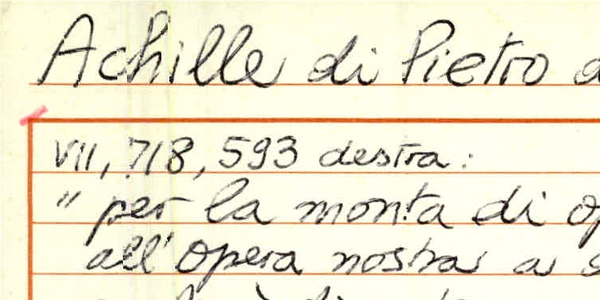 Achille di Pietro
VII, 718, 593 destra:
" per la monta di
all'opera nostra a